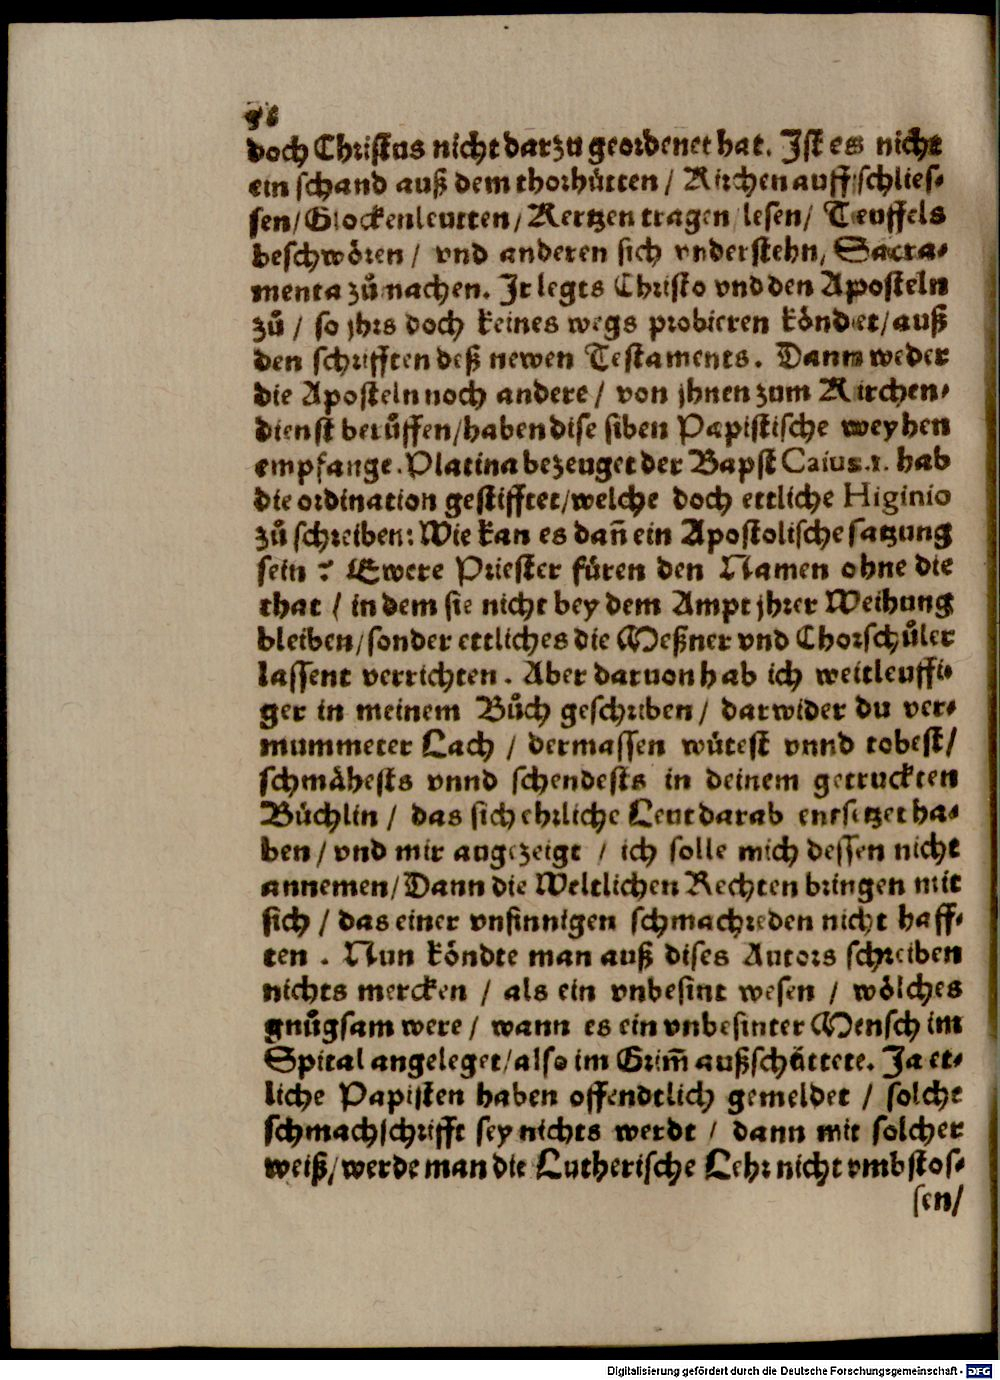 doch Christus nicht darzu geordenet hat. Ist es nicht
ein schand auß dem thorhütten / Kirchen auffschlies-
sen / Glockenleutten / Kertzen tragen / lesen / Teuffels
beschwören / vnd anderen sich vnderstehn, Sacra-
menta zů machen. Ir legts Christo vnd den Aposteln
zů / so jhrs doch keines wegs probieren köndet / auß
den schrifften deß newen Testaments. Dann weder
die Aposteln noch andere / von jhnen zum Kirchen-
dienst berůffen / haben dise siben Papistische weyhen
empfange. Platina bezeuget der Bapst Caius. 1. hab
die ordination gestifftet / welche doch ettliche Higinio
zů schreiben: Wie kan es dañ ein Apostolische satzung
sein? Ewere Priester füren den Namen ohne die
that / in dem sie nicht bey dem Ampt jhrer Weihung
bleiben / sonder ettliches die Meßner vnd Chorschůler
lassent verrichten. Aber daruon hab ich weitleuffi-
ger in meinem Bůch geschriben / darwider du ver-
mummeter Lach / dermassen wütest vnnd tobest /
schmähests vnnd schendests in deinem getruckten
Büchlin / das sich ehrliche Leut darab entsetzet ha-
ben / vnd mir angezeigt / ich solle mich dessen nicht
annemen / Dann die Weltlichen Rechten bringen mit
sich / das einer vnsinnigen schmachreden nicht haff-
ten. Nun köndte man auß dises Autors schreiben
nichts mercken / als ein vnbesint wesen / wölches
gnůgsam were / wann es ein vnbesinter Mensch im
Spital angeleget / also im Grim̃ außschüttete. Ja et-
liche Papisten haben offendtlich gemeldet / solche
schmachschrifft sey nichts werdt / dann mit solcher
weiß / werde man die Lutherische Lehr nicht vmbstos-
sen /
Digitalisierung gefördert durch die Deutsche Forschungsgemeinschaft - DFG